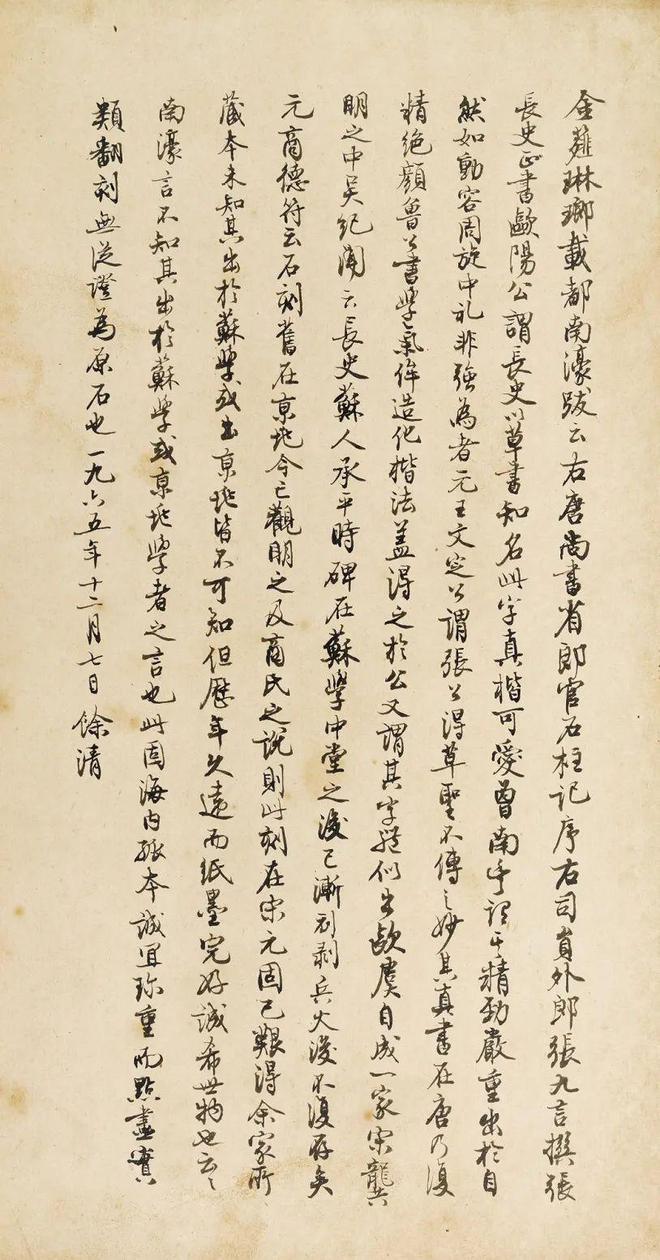 金薤琳瑯載都南濠跋云右唐尚書省郎官石柱記序右司員外郎張九言撰張
長史正書歐陽公謂長史以草書知名此字真楷可愛曾南豐謂其精勁嚴重出於自
然如動容周旋中礼非強為者元王文定公謂張公得草聖不傳之妙其真書在唐乃復
精絕顏魯公書學氣侔造化楷法蓋得之於公又謂其字體似出歐虞自成一家宋龔
明之中吳紀聞云長史蘇人承平時碑在蘇學中堂之後已漸刓剥兵火後不復存矣
元商德符云石刻舊在京兆今亡觀明之及商氏之說則此刻在宋元固已艱得余家所
藏本未知其出於蘇學或出京兆皆不可知但歷年久遠而紙墨完好誠希世物也云云
南濠言不知其出於蘇學或京兆學者之言也此固海内孤本誠宜珍重而點畫實
類翻刻無從證為原石也一九六五年十二月七日 餘清